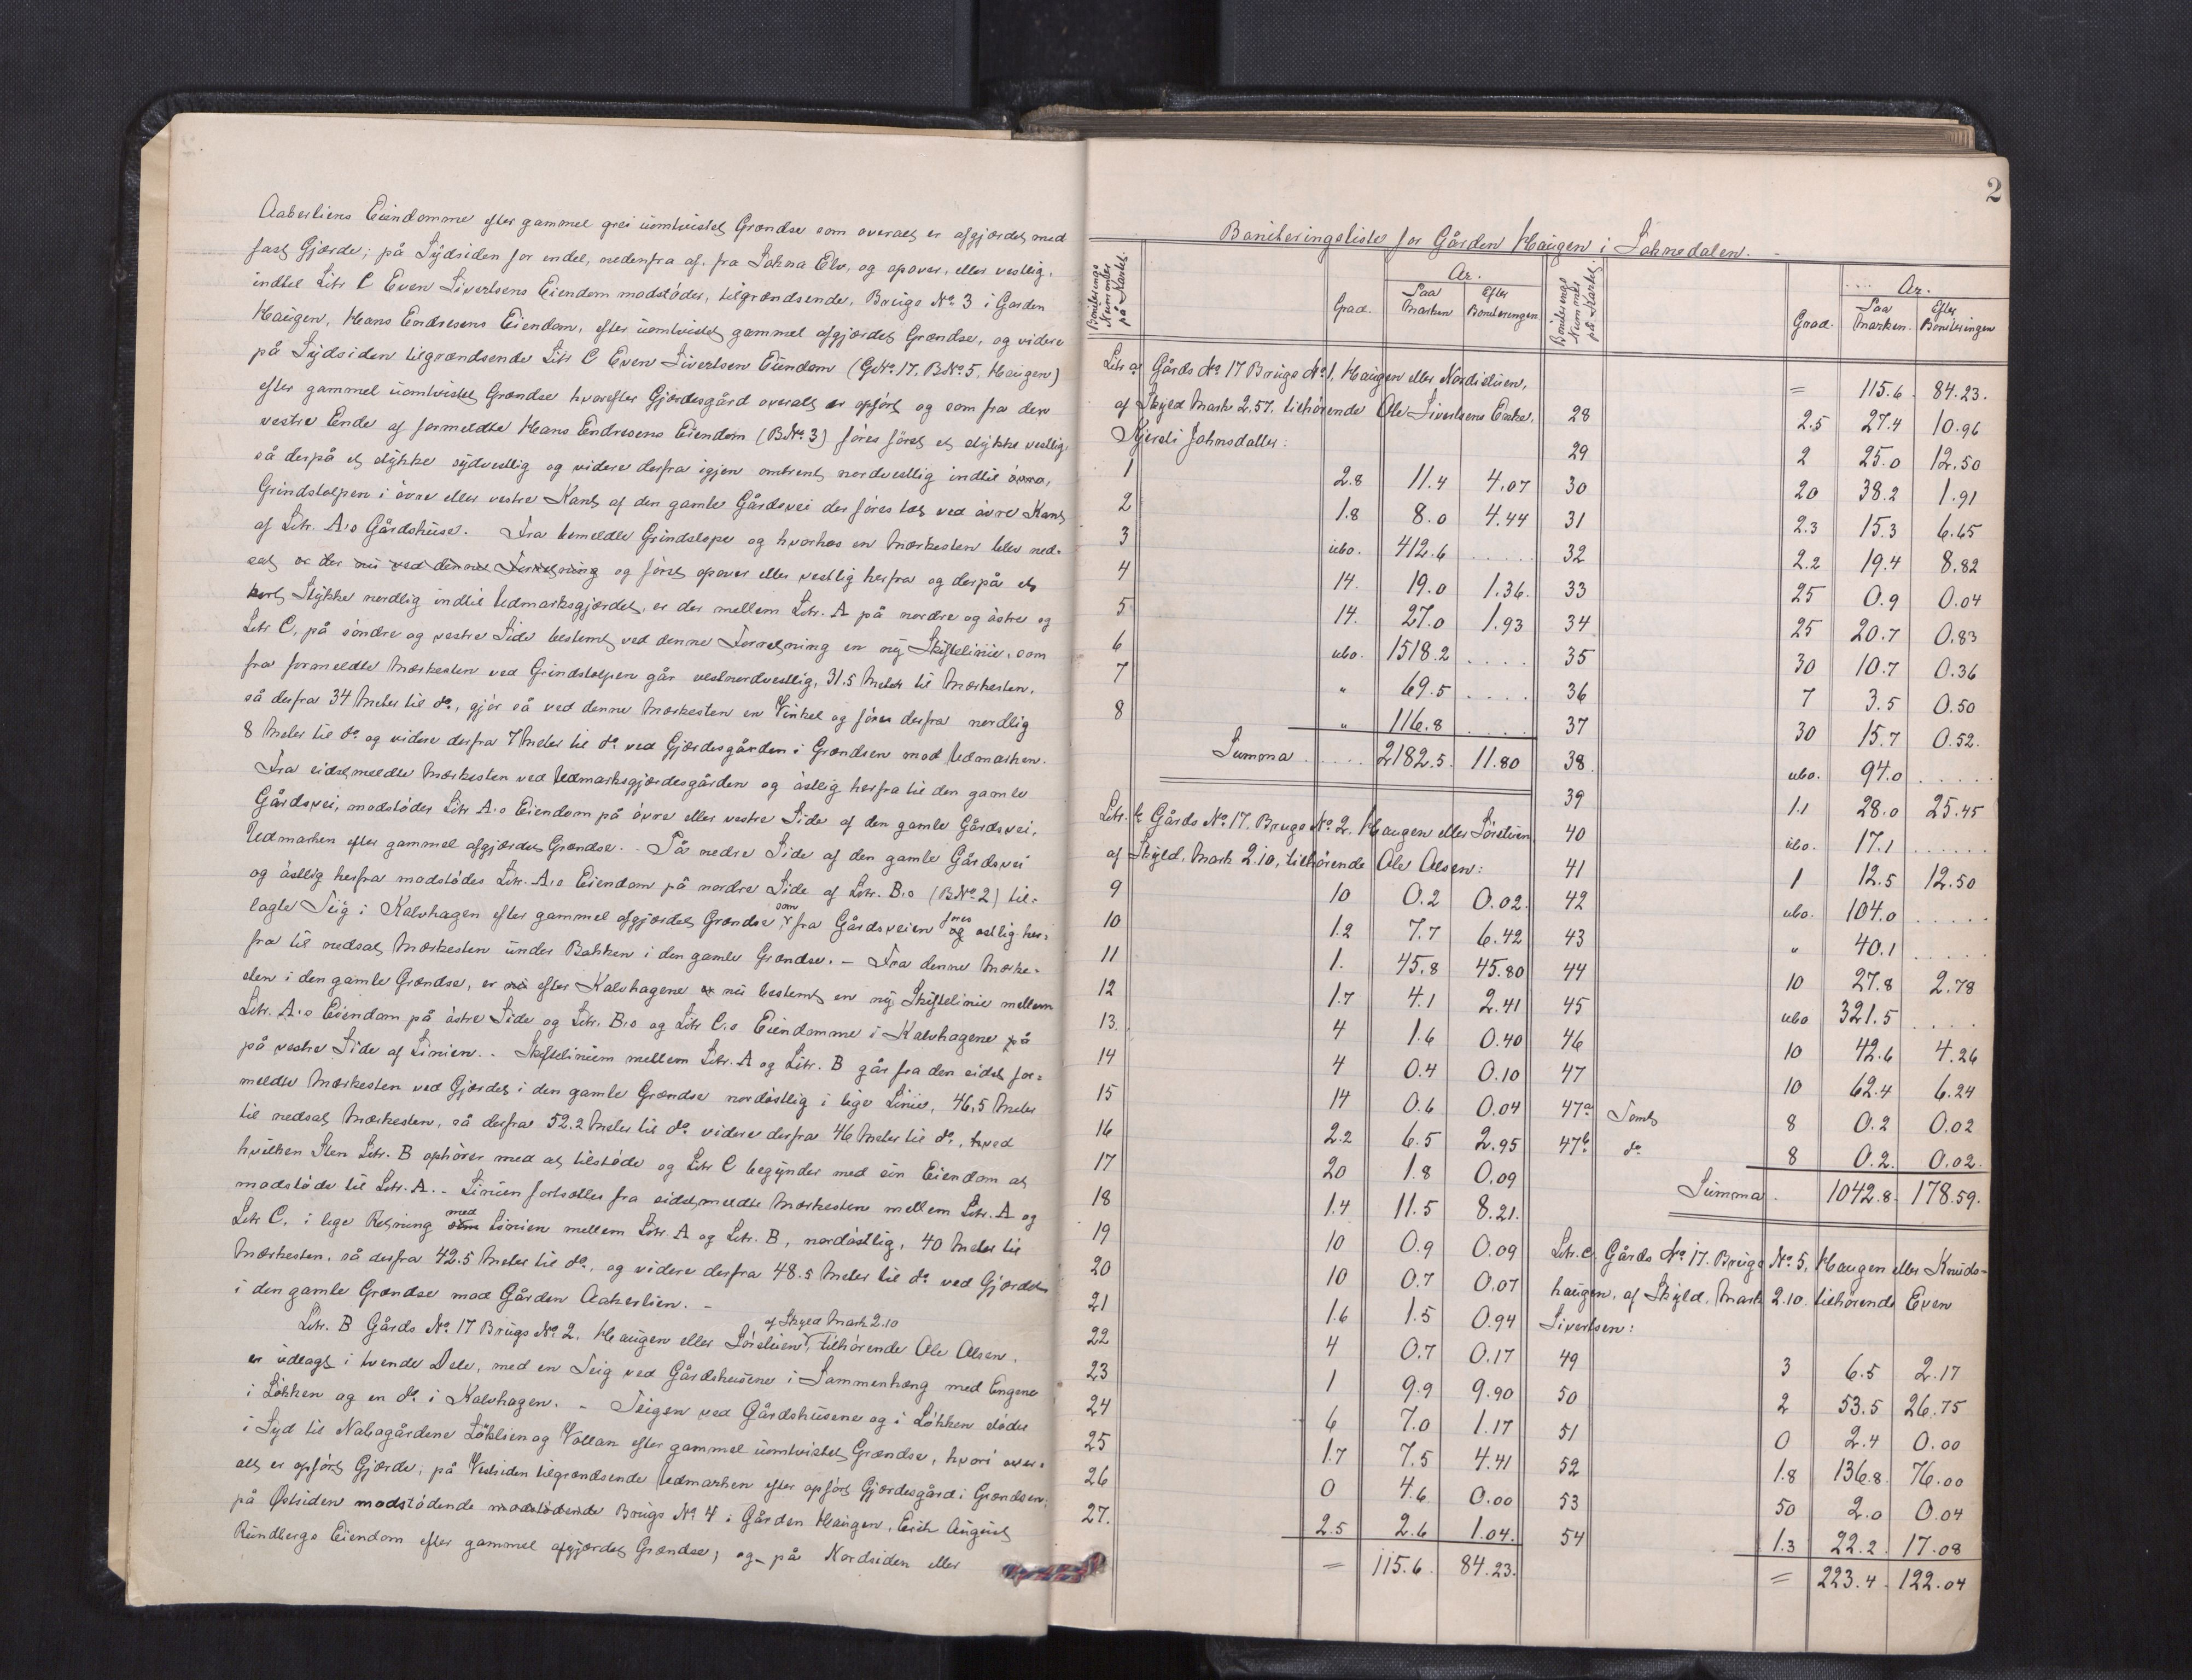 Aaberliens Eiendomme efter gammel grei uomtvistet Grændse som overalt er afgjærdet med
fast Gjærde; på Sydsiden for endel, nedenfra af. fra Sokna Elv, og opover, eller vestlig,
indtil Litr C Even Sivertsens Eiendom modstöder, tilgrændsende, Brugs No 3 i Garden
Haugen, Hans Endresens Eiendom, efter uomtvistet gammel afgjærdet Grændse, og videre
på Sydsiden tilgrændsende Litr C Even Sivertsen Eiendom (GNo. 17, BNo. 5, Haugen)
efter gammel uomtvistet Grændse hvorefter Gjærdesgård overalt er opfört og som fra den
vestre Ende af formeldte Hans Endresens Eiendom (BNo. 3) föres först et stykke vestlig,
så derpå et stykke sydvestlig og videre derfra igjen omtrent nordvestlig indtil
Grindstolpen i övre eller vestre Kant af den gamle Gårdsvei der föres tæt ved övre Kant
af Litr. A.s Gårdshuse. Fra bemeldte Grindstope og hvorhos en Mærkesten blev ned-
sat og der nu ved denne Forretning og först opover eller vestlig herfra og derpå et
kort Stykke nordlig indtil Udmarksgjærdet, er der mellem Litr. A på nordre og östre og
Litr C. på söndre og vestre Side bestemt ved denne Forretning en ny Skiftelinie, som
fra formeldte Mærkesten ved Grindstolpen går vestnordvestlig, 31.5 Meter til Mærkesten,
så derfra 34 Meter til do, gjör så ved denne Mærkesten en Vinkel og föres derfra nordlig
8 Meter til do og videre derfra 7 Meter til do ved Gjærdesgården i Grændsen mod Udmarken.
Fra sidstmeldte Mærkesten ved Udmarksgjærdesgården og östlig herfra til den gamle
Gårdsvei, modstöder Litr A.s Eiendom på övre eller vestre Side af den gamle Gårdsvei,
Udmarken efter gammel afgjærdet Grændse. - På nedre Side af den gamle Gårdsvei
og östlig herfra modstödes Litr. A.s Eiendom på nordre Side af Litr. B.s (BNo. 2) til-
lagte Teig i Kalvhagen efter gammel afgjærdet Grændse som fra Gårdsveien föres og östlig her-
fra til nedsat Mærkesten under Bakken i den gamle Grændse. - Fra denne Mærke-
sten i den gamle Grændse, er nu efter Kalvhagene er nu bestemt en ny Skiftelinie mellem
Litr. A.s Eiendom på östre Side og Litr. B.s og Litr C.s Eiendomme i Kalvhagene på
på vestre Side af Linien. - Skiftelinien mellem Litr. A og Litr. B går fra den sidst for-
meldte Mærkesten ved Gjærdet i den gamle Grændse nordöstlig i lige Linie, 46,5 Meter
til nedsat Mærkesten, så derfra 52.2 Meter til do videre derfra 46 Meter til do, ved
hvilken Sten Litr. B ophörer med at tilstöde og Litr C begynder med sin Eiendom at
modstöde til Litr. A. - Linien fortsættes fra sidstmeldte Mærkesten mellem Litr. A og
Litr C. i lige Retning med som Linien mellem Litr. A og Litr. B, nordöstlig, 40 Meter til
Mærkesten, så derfra 42.5 Meter til do, og videre derfra 48.5 Meter til do ved Gjærdet
i den gamle Grændse mod Gården Aakerlien. -
af Skyld Mark 2.10
Litr. B Gårds No 17 Brugs No 2. Haugen eller Sörstuen, tilhörende Ole Olsen,
er udlagt i tvende Dele, med en Teig ved Gårdshusene i Sammenhæng med Engene
i Lökken og en do i Kalvhagen. - Teigen ved Gårdshusene og i Lökken stöder
i Syd til Nabogårdene Löklien og Vollan efter gammel uomtvistet Grændse, hvori over-
alt er opfört Gjærde; på Vestsiden tilgrændsende Udmarken efter opfört Gjærdesgård i Grændsen;
på Østsiden modstödende modstödende Brugs No 4 i Gården Haugen, Erik August
Rundbergs Eiendom efter gammel afgjærdet Grændse; og på Nordsiden eller
2
Boniteringsliste for Gården Haugen i Soknedalen. -
Boniterings Nummer på Kartet. Grad. Ar. Paa Marken Efter Boniteringen
Litr a Gårds No 17 Brugs No 1, Haugen eller Nordistuen,
af Skyld Mark 2.57. tilhörende Ole Sivertsens Enke,
Kjersti Johnsdatter:
1 2.8 11.4 4.07
2 1.8 8.0 4.44
3 ubo. 412.6 . . . . .
4 14. 19.0 1.36.
5 14. 27.0 1.93
6 ubo. 1518.2 . . . .
7 " 69.5 . . . .
8 " 116.8 . . . .
Summa . . . . . 2182.5. 11.80
Litr. b Gårds No. 17. Brugs No. 2. Haugen eller Sörstuen
af Skyld. Mark 2.10, tilhörende Ole Olsen:
9 10 0.2 0.02.
10 1.2 7.7 6.42
11 1. 45.8 45.80
12 1.7 4.1 2.41
13. 4 1.6 0.40
14 4 0.4 0.10
15 14 0.6 0.04
16 2.2 6.5 2.95
17 20 1.8 0.09
18 1.4 11.5 8.21.
19 10 0.9 0.09
20 10 0.7 0.07
21 1.6 1.5 0.94
22 4 0.7 0.17
23 1 9.9 9.90
24 6 7.0 1.17
25 1.7 7.5 4.41
26 0 4.6 0.00
27. 2.5 2.6 1.04.
= 115.6. 84.23.
Boniterings Nummer på Kartet. Grad. Ar. Paa Marken. Efter Boniteringen
= 115.6 84.23.
28 2.5 27.4 10.96
29 2 25.0 12.50
30 20 38.2 1.91
31 2.3 15.3 6.65
32 2.2 19.4 8.82
33 25 0.9 0.04
34 25 20.7 0.83
35 30 10.7 0.36
36 7 3.5 0.50
37 30 15.7 0.52.
38. ubo. 94.0 . . . . .
39 1.1 28.0 25.45
40 ubo. 17.1 . . . . . .
41 1 12.5 12.50
42 ubo. 104.0 . . . . .
43 " 40.1 . . . . .
44 10 27.8 2.78
45 ubo 321.5 . . . .
46 10 42.6 4.26
47 10 62.4 6.24
47a Tomt 8 0.2 0.02
47b do 8 0.2. 0.02.
Summa. 1042.8. 178.59.
Litr. c. Gårds No 17. Brugs No 5, Haugen eller Knuds-
haugen, af Skyld. Mark 2.10. tilhörende Even
Sivertsen:
49 3 6.5 2.17
50 2 53.5 26.75
51 0 2.4 0.00
52 1.8 136.8. 76.00
53 50 2.0 0.04
54 1.3 22.2 17.08
= 223.4. 122.04